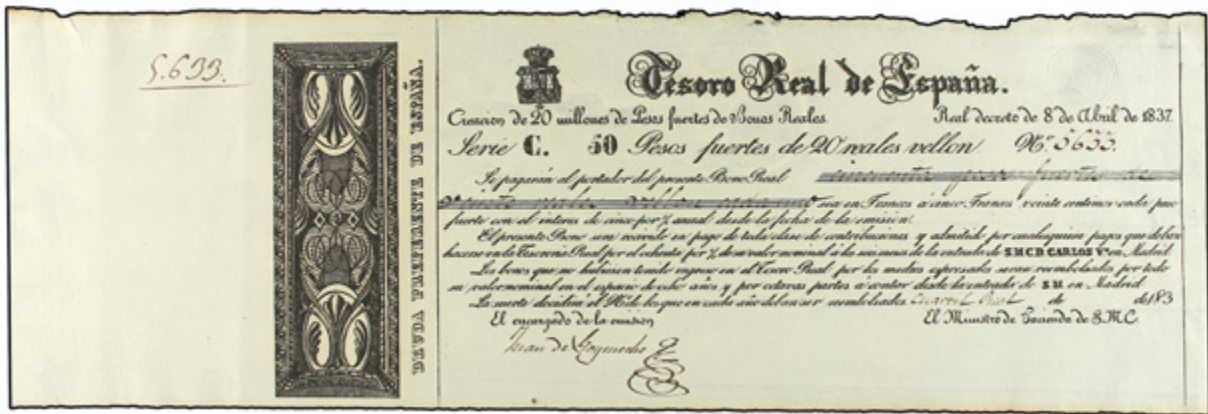 5.633.
DEUDA PREFERENTE DE ESPAÑA.
Tesoro Real de España.
Creacion de 20 millones de Pesos fuertes de Bonos Reales. Real decreto de 8 de Abril de 1837
Serie C. 50 Pesos fuertes de 20 reales vellon Nº. 5633.
Se pagarán al portador del presente Bono Real cincuenta pesos fuertes de
veinte reales vellon cada uno sea en Francos á cinco Francs veinte centimos cada peso
fuerte con el interes de cinco por % anual desde la fecha de la emision.
El presente Bono sera recivido en pago de toda clase de contribuciones y admitido por cualesquiera pagos que deban
hacerse en la Tesoreria Real por el ochenta por % de su valor nominal á los seis meses de la entrada de S.M.C.D. CARLOS Vº en Madrid
Los bonos que no hubiesen tenido ingreso en el Tesoro Real por los medios espresados seran reembolsados por todo
su valor nominal en el espacio de ocho años y por octavas partes á contar desde la entrada de S.M. en Madrid
La suerte decidirá el Nº de los que en cada año deban ser reembolsados. Cuartel Real de de 183
El encargado de la emision El Ministro de Hacienda de S.M.C.
Juan de Goyeneche